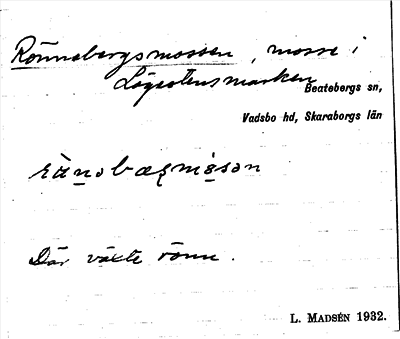 Rönnebergsmossen, mosse i
Lögestensmarken
Beatebergs sn,
Vadsbo hd, Skaraborgs län
Där växte rönn.
L. MADSÉN 1932.